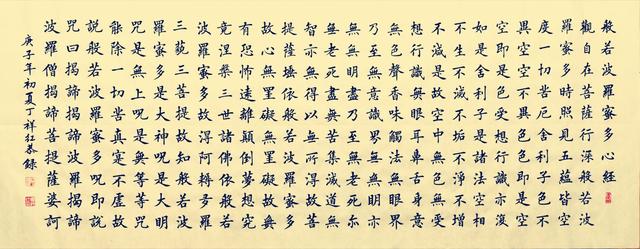 般若波羅蜜多心經
觀自在菩薩行深般若波
羅蜜多時照見五蘊皆空
度一切苦厄舍利子色不
異空空不異色色即是空
空即是色受想行識亦復
如是舍利子是諸法空相
不生不滅不垢不淨不增
不減是故空中無色無受
想行識無眼耳鼻舌身意
無色聲香味觸法無眼界
乃至無意識界無無明亦
無無明盡乃至無老死亦
無老死盡無苦集滅道無
智亦無得以無所得故菩
提薩埵依般若波羅蜜多
故心無罣礙無罣礙故無
有恐怖遠離顛倒夢想究
竟涅槃三世諸佛依般若
波羅蜜多故得阿耨多羅
三藐三菩提故知般若波
羅蜜多是大神咒是大明
咒是無上咒是無等等咒
能除一切苦真實不虛故
說般若波羅蜜多咒即說
咒曰揭諦揭諦波羅揭諦
波羅僧揭諦菩提薩婆訶
庚子年初夏丁祥紅恭錄